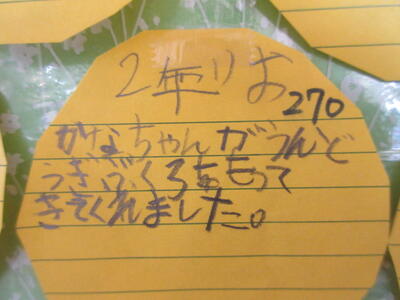 2年りお
270
かなちゃんがうんど
うぎぶくろをもって
きてくれました。